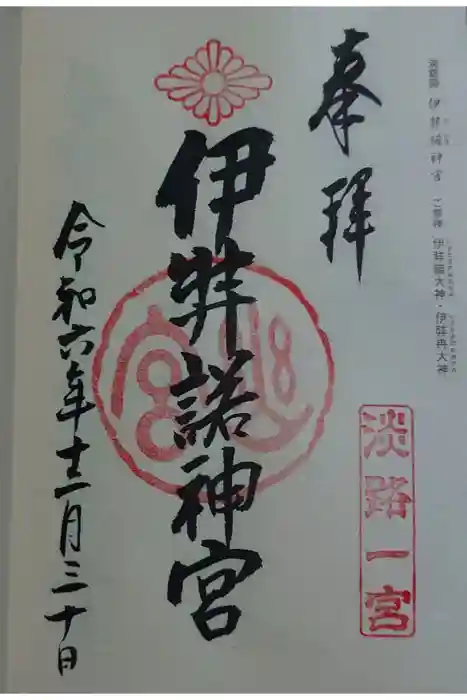 淡路國 伊弉諾神宮 ご祭神 伊弉諾大神・伊弉冉大神
奉拝
淡路一宮
伊弉諾神宮
令和六年十二月三十日